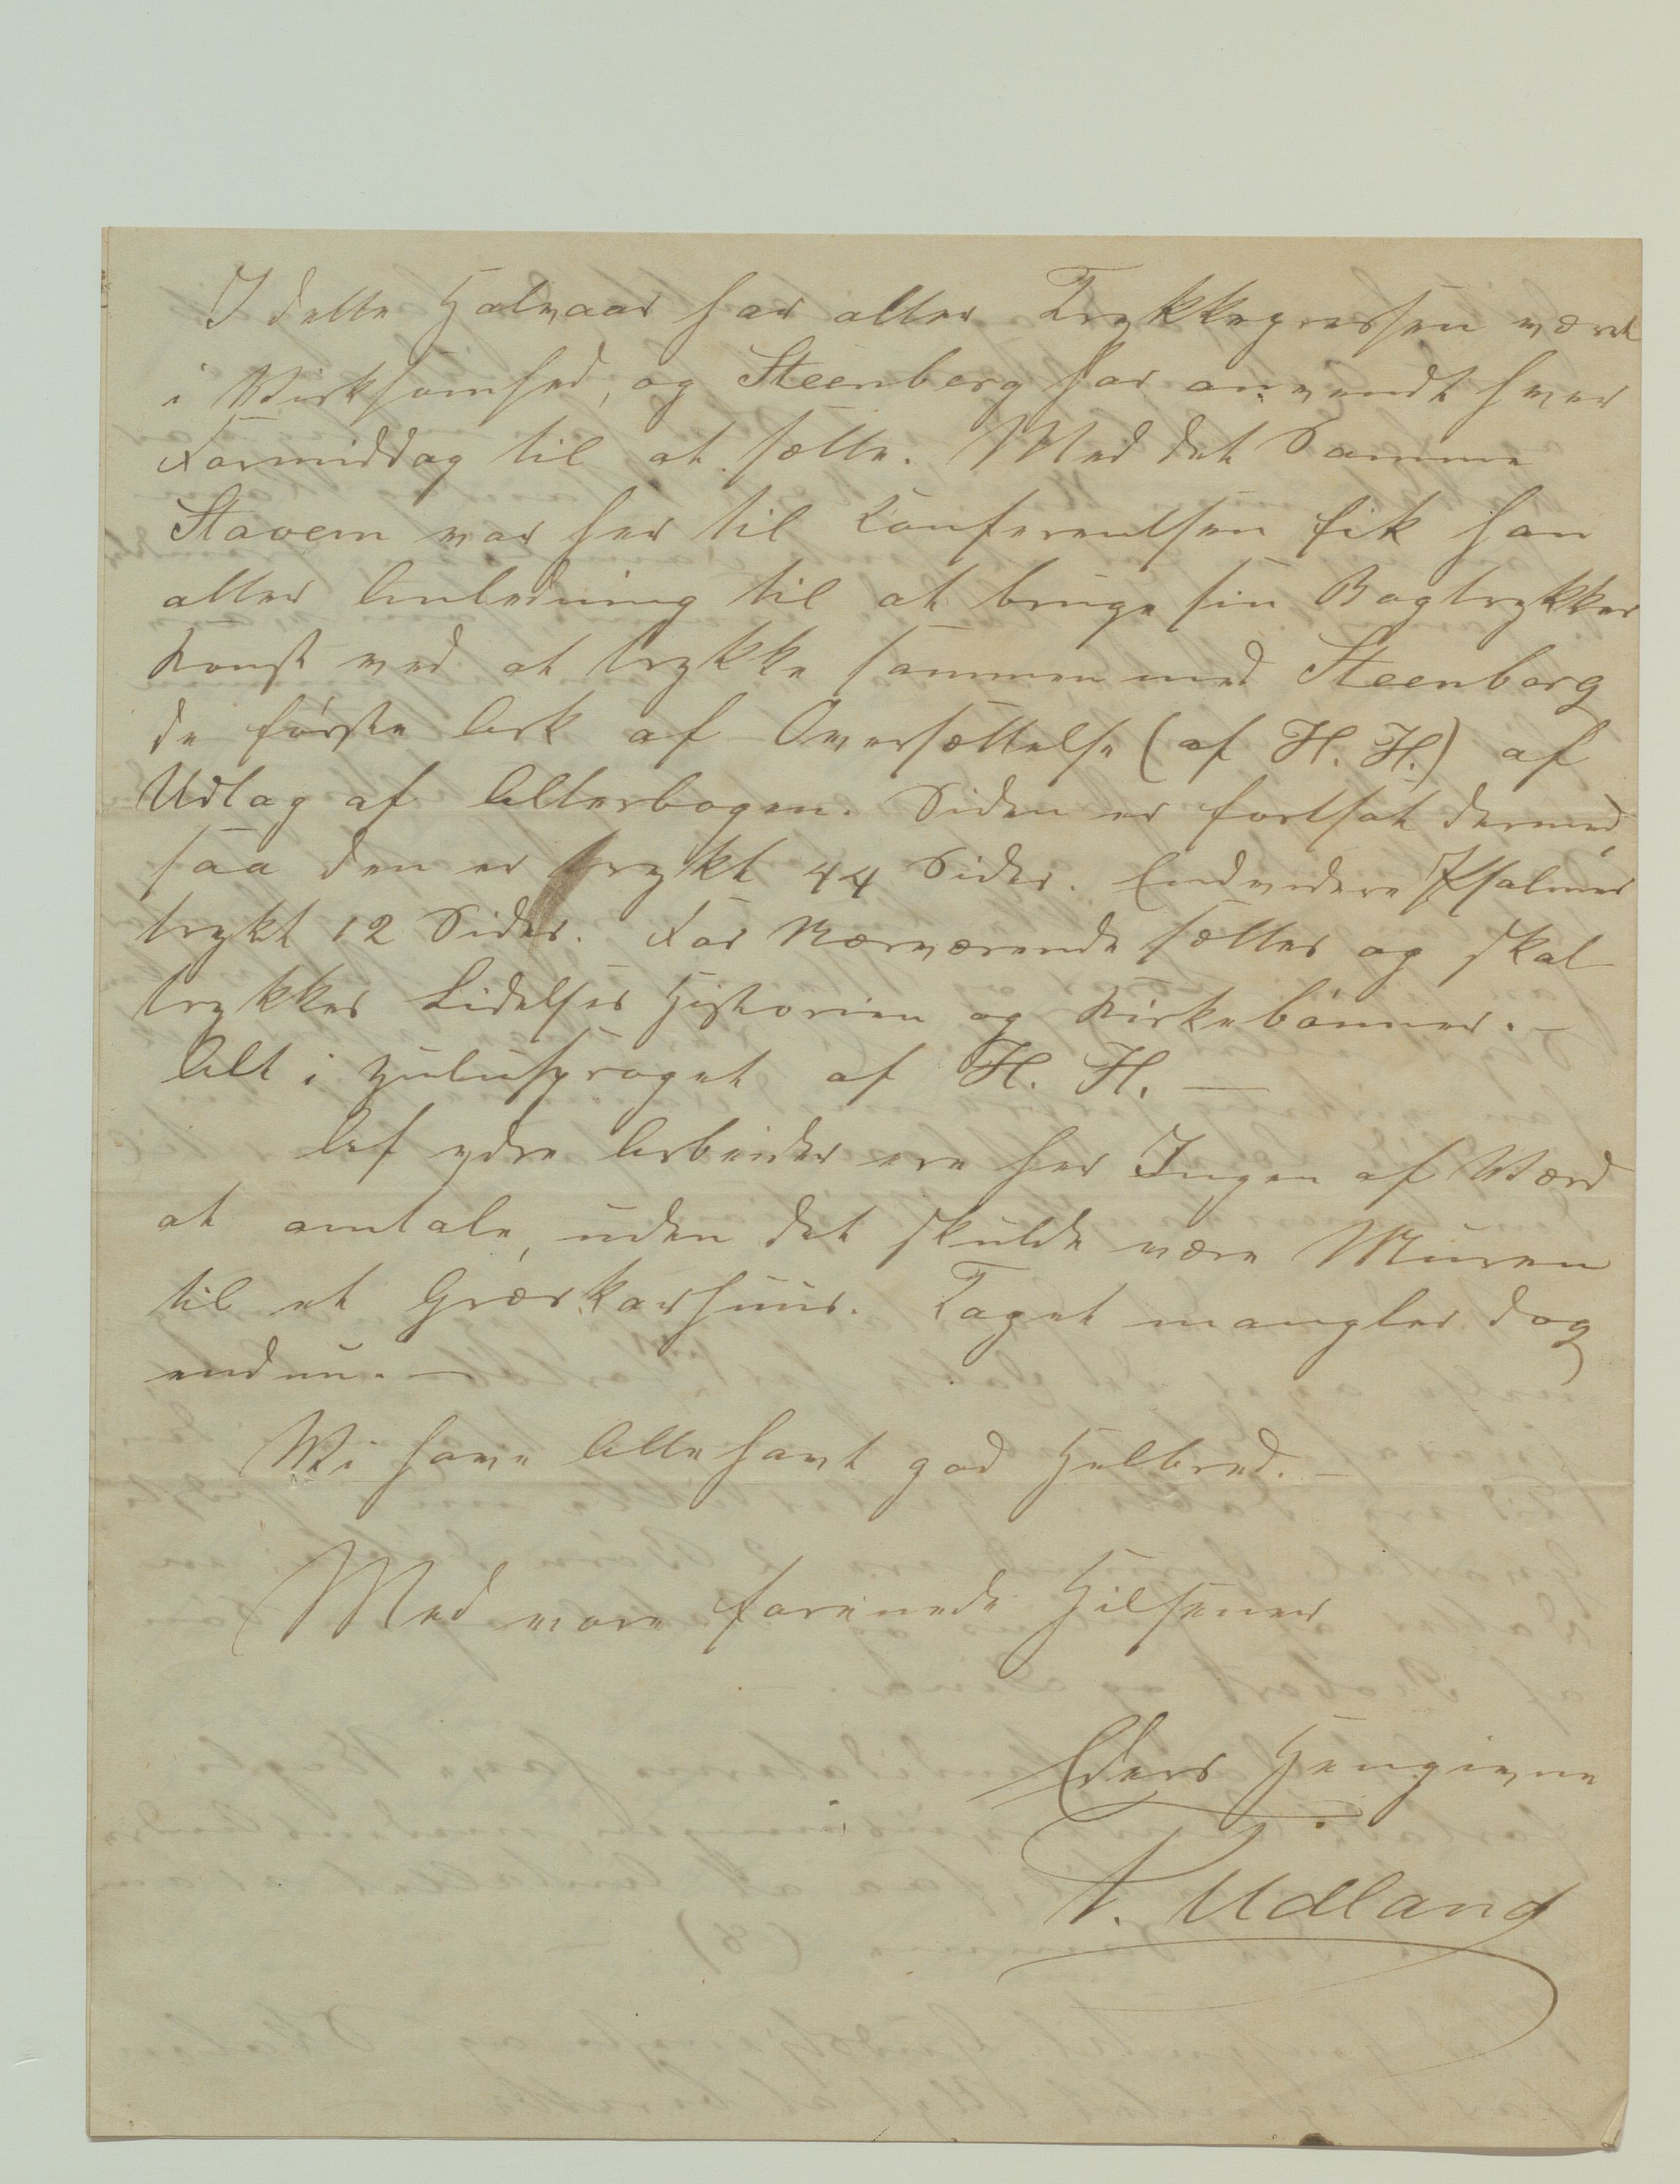 I dette Halvaar har atter Trykkepressen været
i Virksomhed, og Steenberg har anvendt hver
Formiddag til at sætte. Med det Samme
Stavem var her til Conferentsen fik han
atter Anledning til at bruge sin Bogtrykker
Konst ved at trykke sammen med Steenberg
de første Ark af Oversættelse (af H. H.) af
Udtog af Alterbogen. Siden er fortsat dermed,
saa den er trykt 44 Sider. Endvidere Psalmer
trykt 12 Sider. For Nærværende sættes og skal
trykkes Lidelses Historien og Kirkebønner. –
Alt i Zulusproget af H. H. —
Af ydre Arbeider ere her Ingen af Værd
at omtale, uden det skulde være Muren
til et Græskarhuus. Taget mangler dog
endnu. —
Vi have Alle havt god Helbred. –
Med vore forenede Hilsener
Eders Hengivne
T. Udland